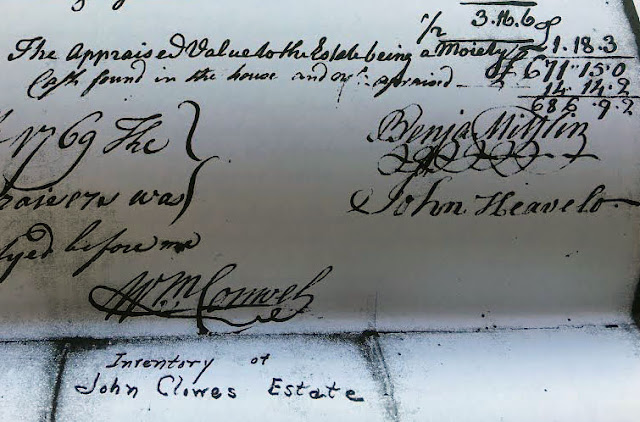 1/2 3.16.6
The Appraised Value to the Estate being a Moiety 1.18.3
Cash found in the house and appraised £671.15.0
14.14.2
686.9.2
1769 The
raisers was
before me
Benja Mifflin
John Heavelo
Wm Conwell
Inventory of
John Clowes Estate